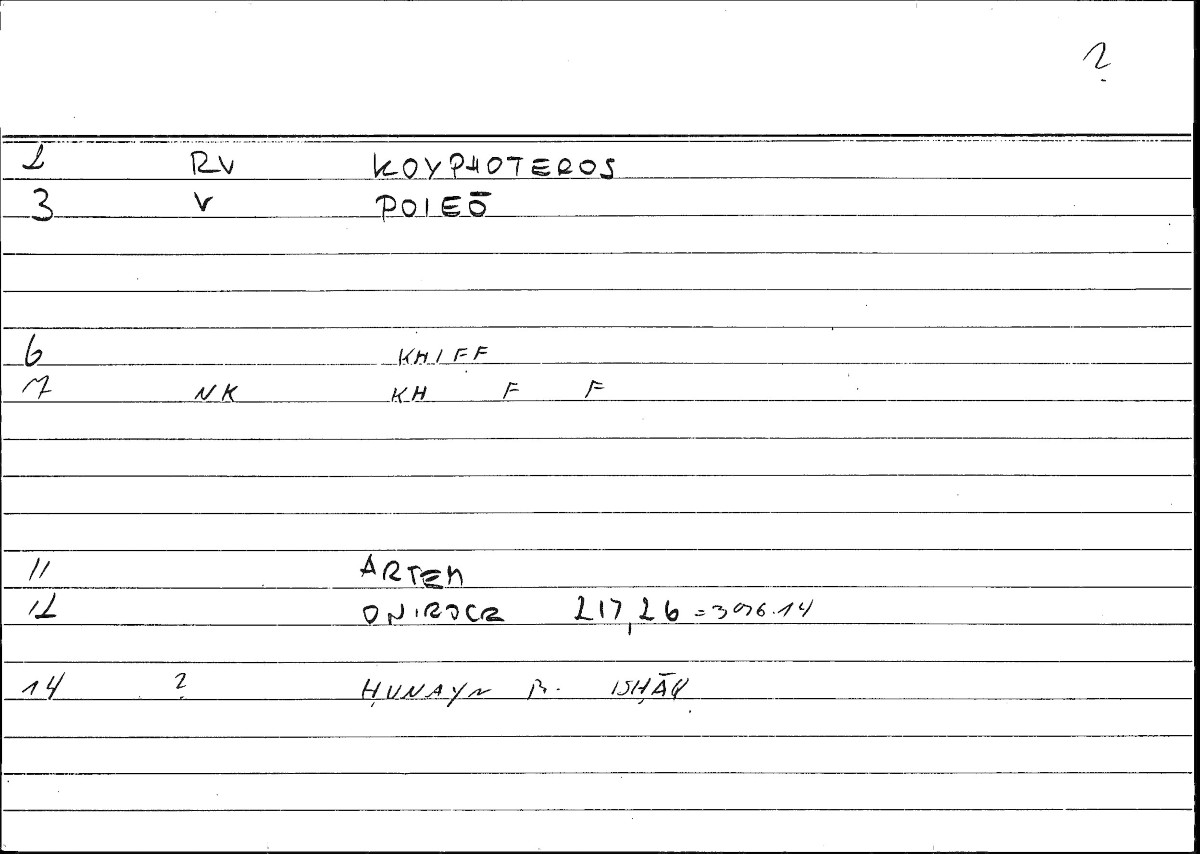 ?
2 RV KOYPHOTEROS
3 V POIEŌ
6 KHIFF
7 NK KH F F
11 ARTEM
12 ONIROCR 217,26 = 396.14
14 ? ḤUNAYN B. ISḤĀQ